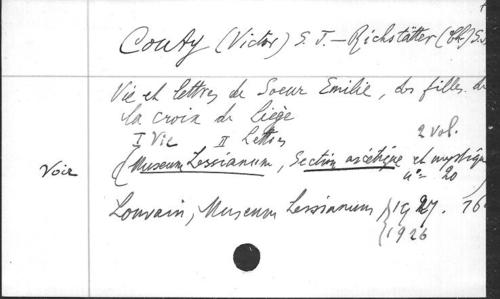 Couty (Victor) S.J. – Richstätter (Ch.) S.J.
Vie et lettres de Soeur Emilie, des filles de
la croix de Liège
I Vie II Lettres 2 vol.
Voir (Museum Lessianum, Section ascétique et mystique
n°= 20)
Louvain, Museum Lessianum 1927. 16
1926